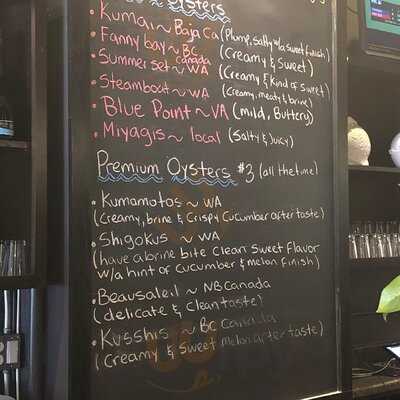 Oysters
• Kumai ~ Baja Ca (Plump, salty w/a sweet finish)
• Fanny bay ~ BC Canada (Creamy & Sweet)
• Summer set ~ WA (Creamy & Kind of Sweet)
• Steamboat ~ WA (Creamy, meaty & brine)
• Blue Point ~ VA (mild, Buttery)
• Miyagis ~ local (Salty & Juicy)
Premium Oysters $3 (all the time)
• Kumamotos ~ WA
(Creamy, brine & Crispy Cucumber after taste)
• Shigokus ~ WA
(have a brine bite Clean Sweet flavor
w/a hint of cucumber & melon finish)
• Beausoleil ~ NB Canada
(delicate & Clean taste)
• Kusshis ~ BC Canada
(Creamy & Sweet melon after taste)